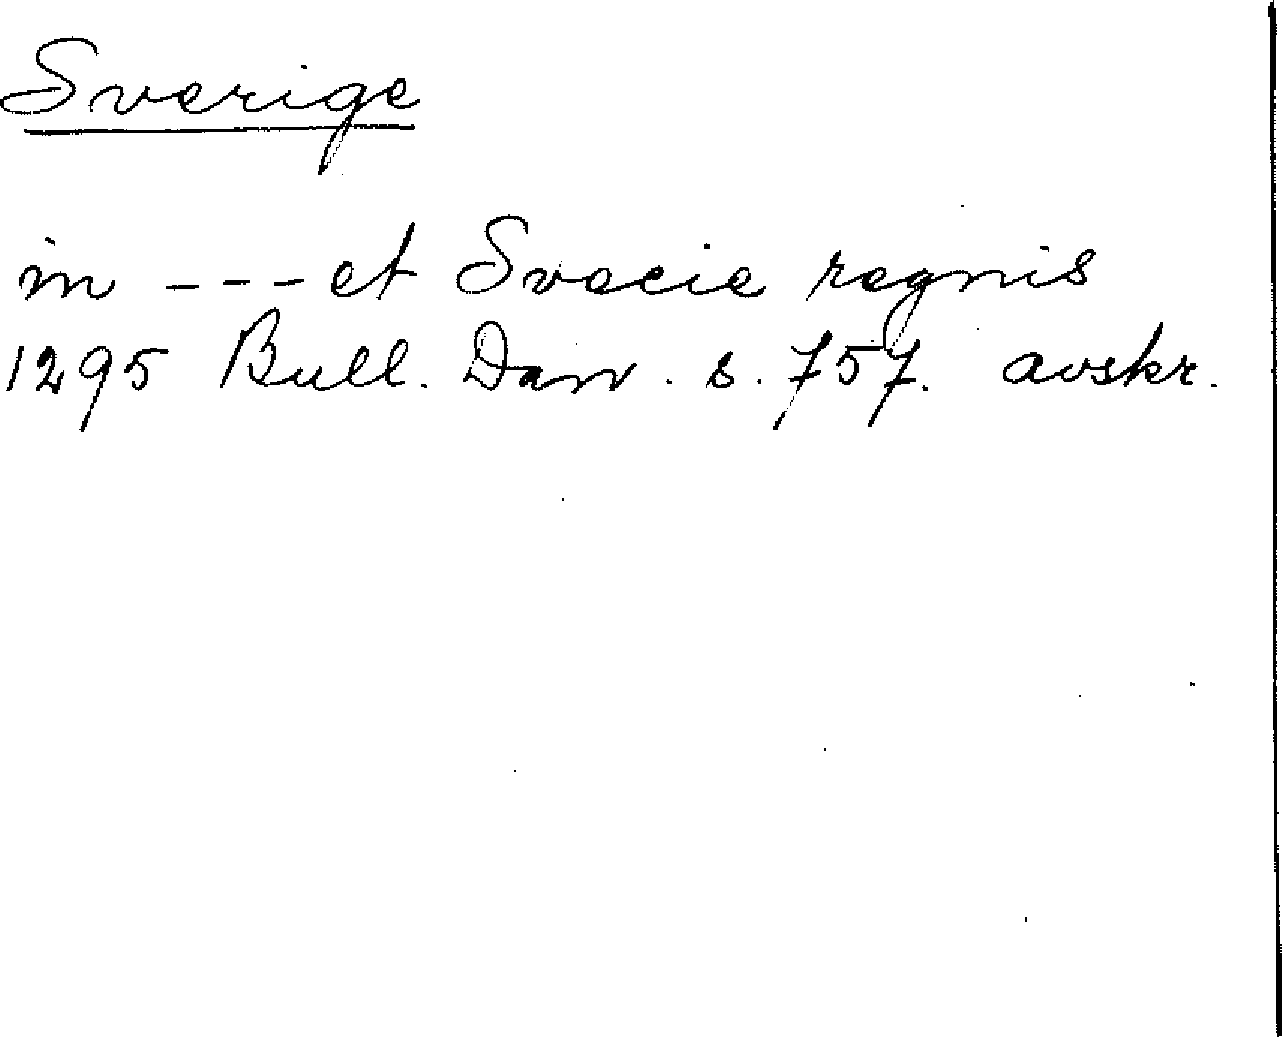 Sverige
in --- et Svecie regnis
1295 Bull. Dan. s. 757. avskr.